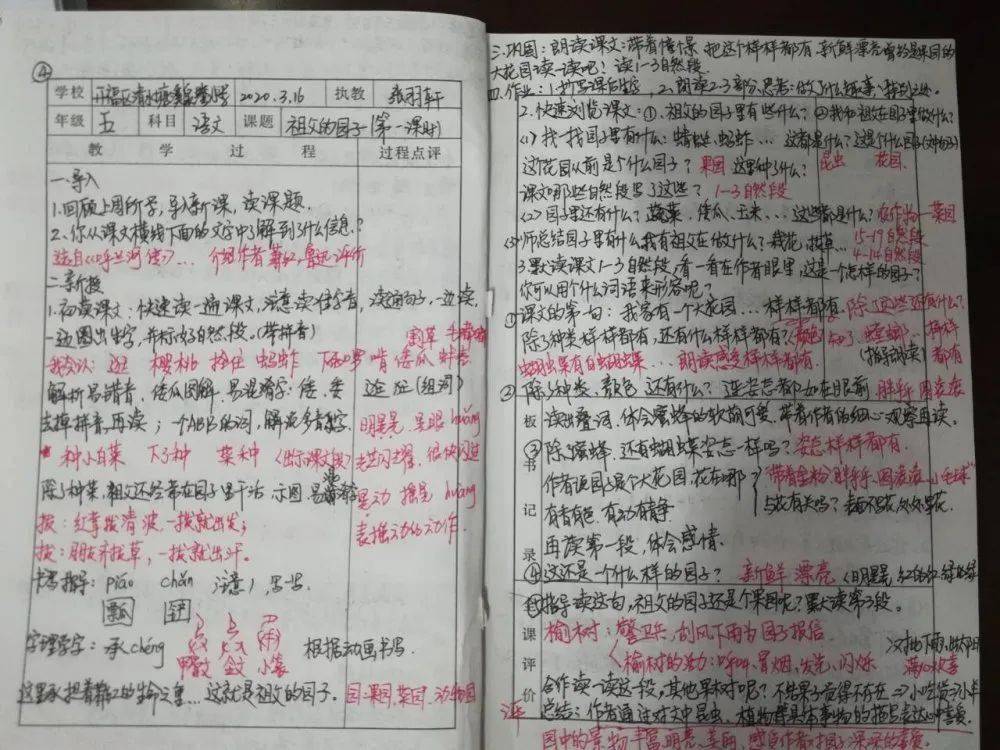 ④
学校 开福区清水塘 2020.3.16 执教 张羽轩
年级 五 科目 语文 课题 祖父的园子(第一课时)
教 学 过 程 过程点评
一.导入
1.回顾上周所学,导入新课,读课题.
2.你从课文横线下面的文字中了解到了什么信息?
选自《呼兰河传》... 介绍作者萧红,鲁迅评价
二.新授
1.初读课文:快速读一遍课文,注意读准字音,读通句子,一边读,
一边圈出生字,并标好自然段。(带拼音)
我会认:逛 樱桃 拴住 蚂蚱 啃 倭瓜
解析易错音,倭瓜图解.易混淆字:倭、委 (组词)
去掉拼音,再读;一个ABB的词,解说多音字. 明晃晃 晃眼 huǎng
种小白菜 下了种 菜种 (出示课文段) 光芒闪耀,很快闪过
除了种菜,祖父还经常在园子里干活 示图 易混淆字 晃动 摇晃 huàng
拨:红掌拨清波,一拨就出发; 表摇动的动作.
拔:朋友齐拔草,一拔就出汗。
书写指导:piáo chǎn 注意
瓢 铲
字理学字:承chéng 甲骨文 金文 小篆 根据动画书写
这里承担着萧红的生命之重...这就是祖父的园子. 园:果园,菜园,动物园
三.巩固:朗读课文:带着憧憬 把这个样样都有、新鲜漂亮的
大花园读一读吧!读1-3自然段
四.作业:1.书写课后生字,2.朗读2-3部分,思考:做了什么趣事
2.快速浏览课文:①.祖父的园子里有些什么?②我和祖父在园子里做什么?
(1)找一找园子里有什么:蜻蜓、蚂蚱... 这都是什么?这是什么园子
昆虫 花园
这花园从前是个什么园子?果园 这里种了什么?
课文哪些自然段写了这些? 1-3自然段
(2)园子里还有什么?蔬菜、倭瓜、玉米...这些都是什么?农作物 菜园
(3)师总结园子里有什么,我和祖父在做什么?栽花、拔草... 15-19自然段
4-14自然段
3.默读课文1-3自然段,看一看在作者眼里,这是一个怎样的园子?
你可以用个什么词语来形容呢?
①课文的第一句:我家有一个大花园...样样都有.除了这些还有什么?
除了种类样样都有,还有什么样样都有?颜色 知了 螳螂...样样
蝴蝶里有白蝴蝶... 朗读感受样样都有. (指导朗读) 都有
②除了种类、颜色,还有什么?连姿态都如在眼前 胖乎乎 圆滚滚
读出叠词,体会蜜蜂的软萌可爱,带着作者的细心观察再读。
③除了蜜蜂,还有蝴蝶姿态一样吗?姿态样样都有.
作者说园子是个大花园,花在哪? "带着金粉,胖乎乎、圆滚滚、小毛球"
有香有色.有动有静 与花有关吗?
再读第一段,体会感情.
④这还是一个什么样的园子? 新鲜 漂亮 (明晃晃
指导读这句,祖父的园子还是个果园呢?默读第3段。
榆树:警卫兵,刮风下雨为园子报信
榆树的活力:呼叫、冒烟、发光、闪烁
合作读一读这段,其他果树呢?不结果子觉得不存在
总结:作者通过对文中昆虫、植物等具体事物的描写表达心中喜爱.
园中的景物丰富、明亮、美丽,感受作者对园子深深的喜爱.
板 书 记 录
课 评 价